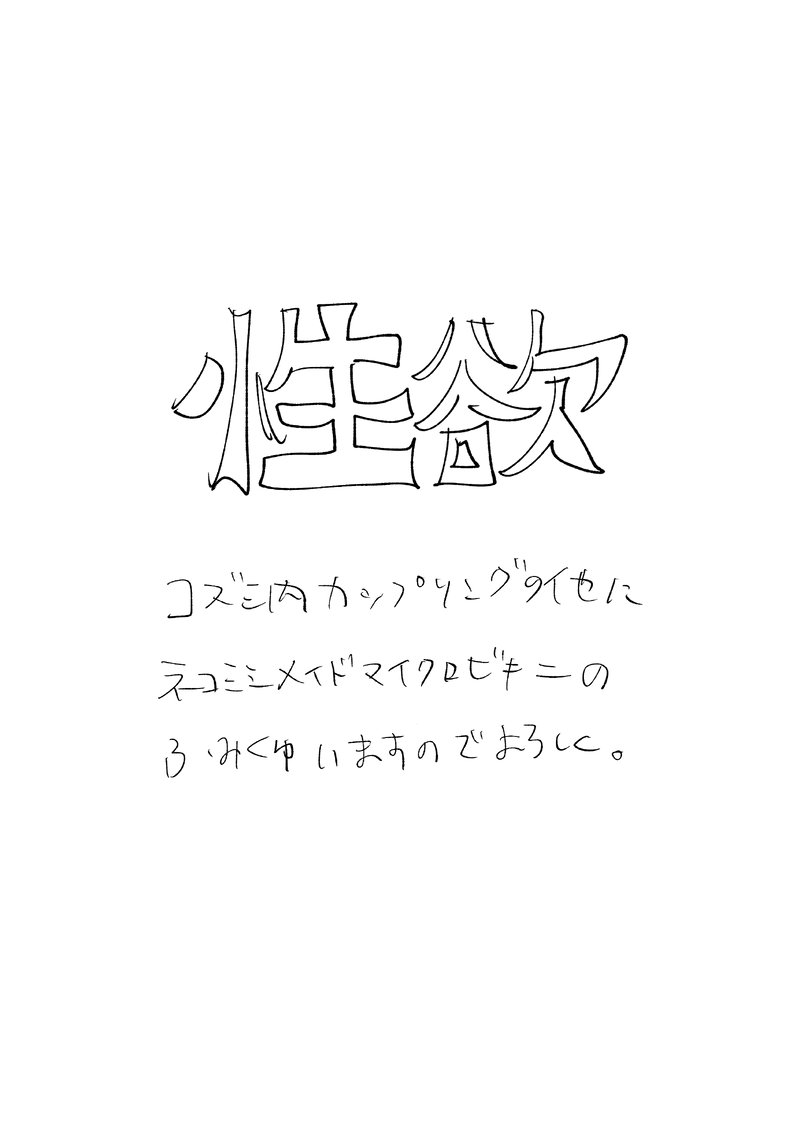 性欲
コズミ内カップリングの他に
ネコミミメイドマイクロビキニの
ふみくゆいますのでよろしく。